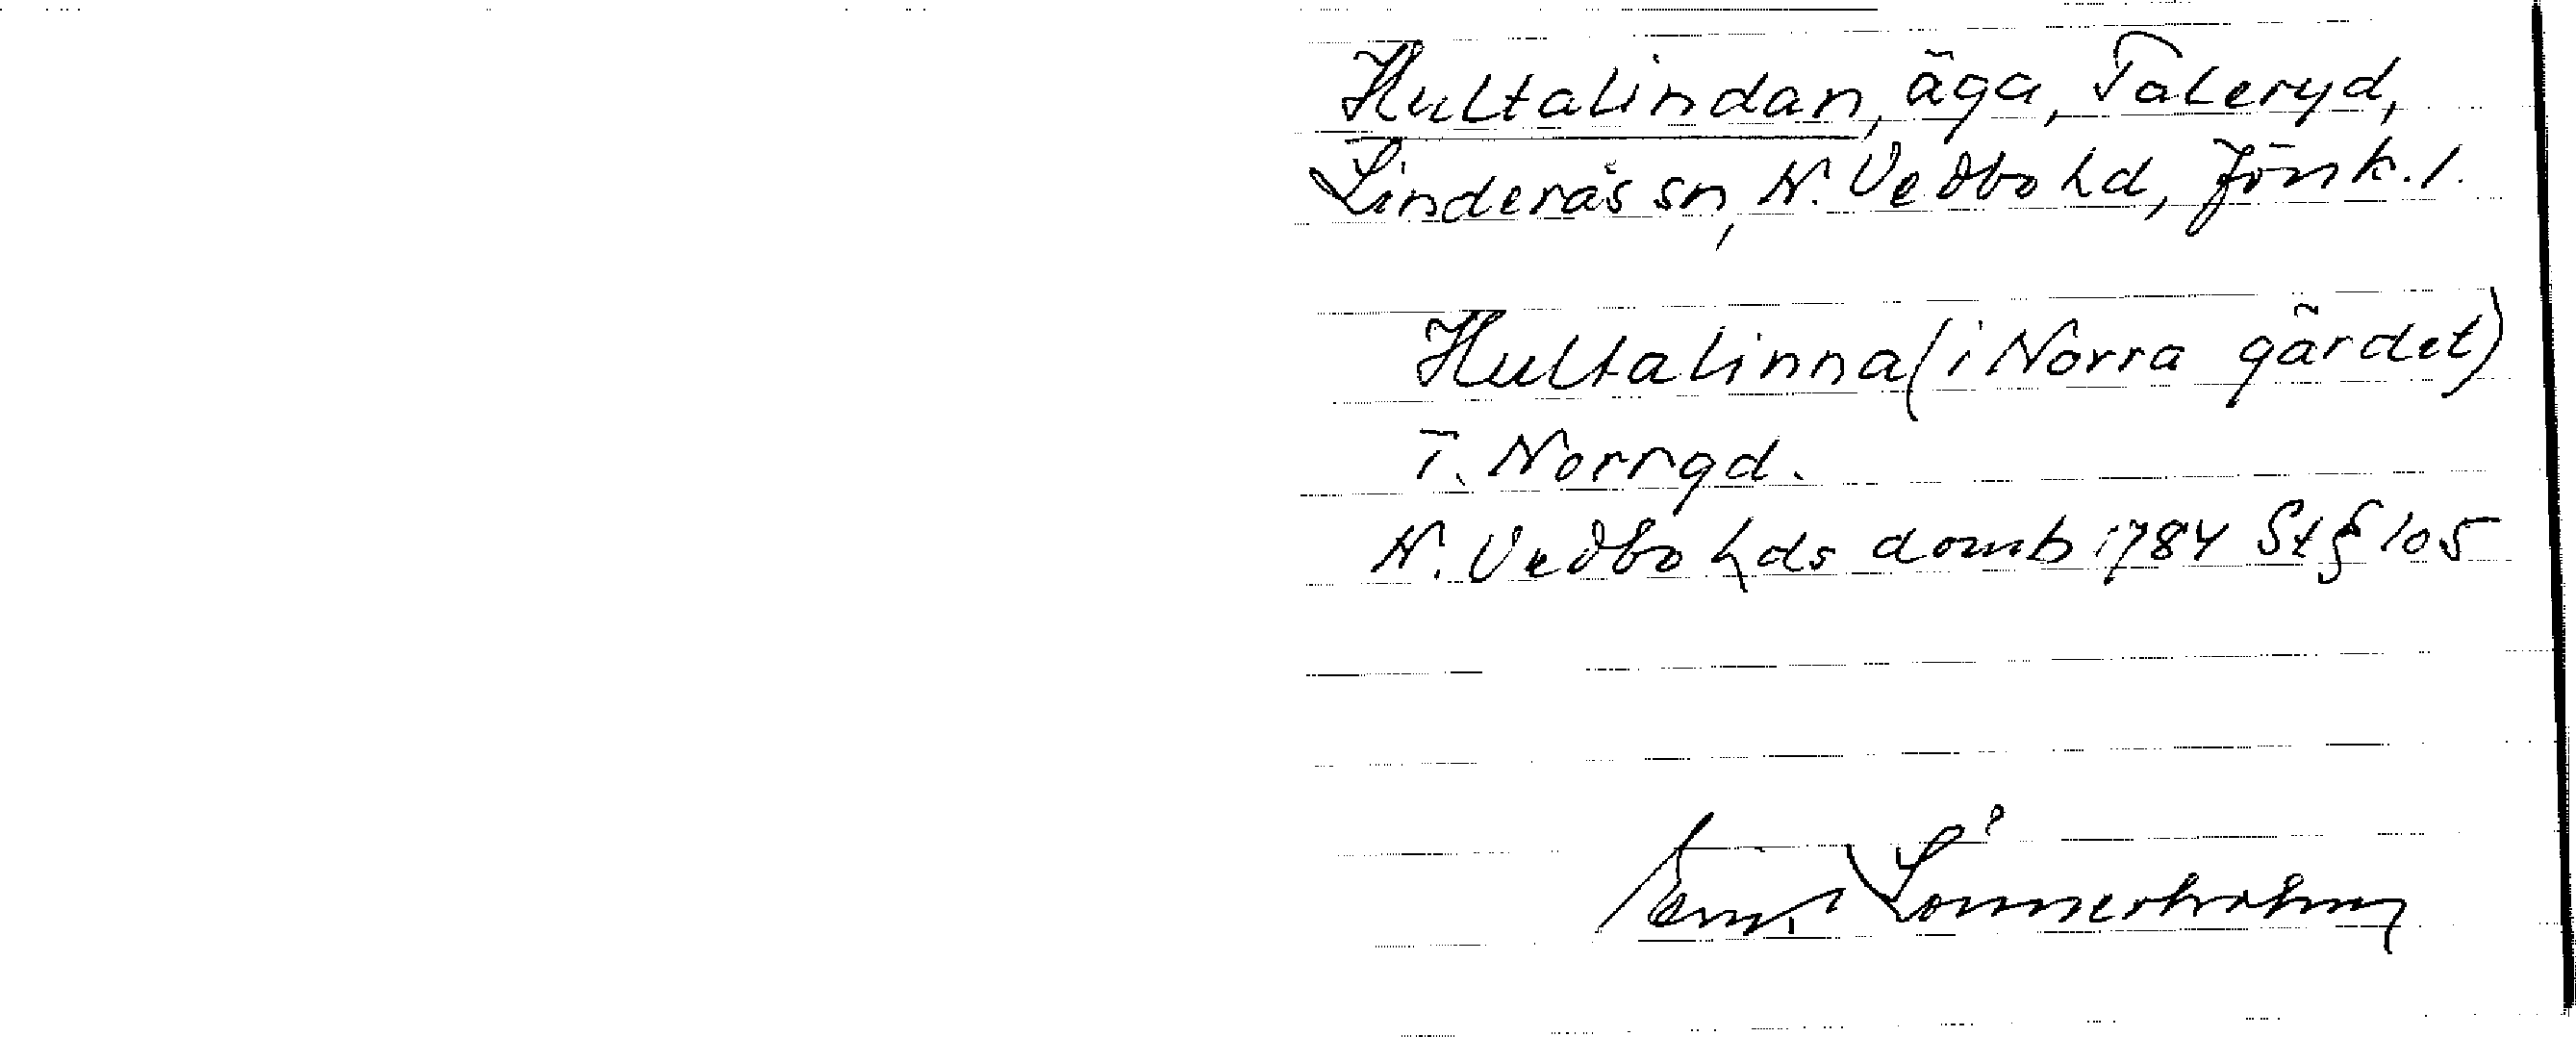 Hultalindan, äga, Taleryd,
Linderås sn, N. Vedbo hd, Jönk. l.
Hultalinna (i Norra gärdet)
T. Norrgd.
N. Vedbo hds domb 1784 St § 105